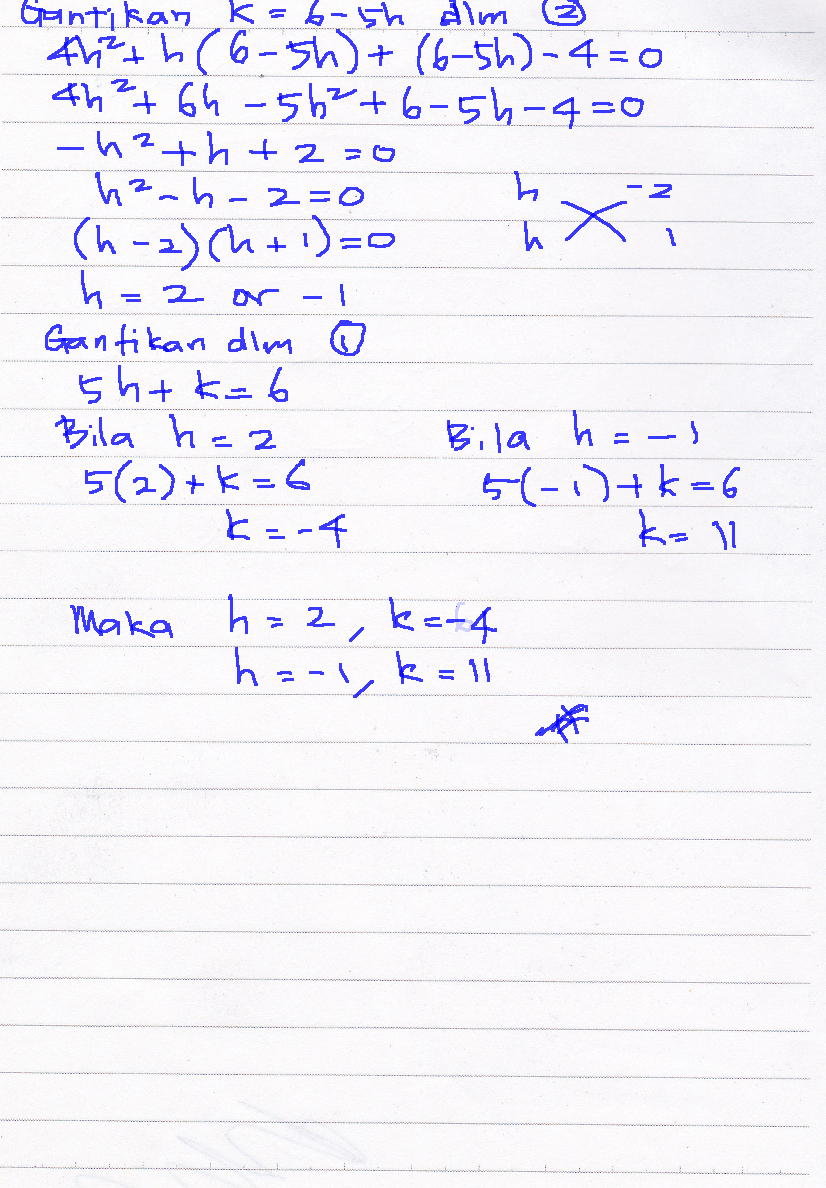 Gantikan k = 6-5h dlm ②
4h²+ h(6-5h)+ (6-5h)-4=0
4h²+ 6h -5h²+6-5h-4=0
-h²+h+2=0
h²-h-2=0 h -2
(h-2)(h+1)=0 h 1
h = 2 or -1
Gantikan dlm ①
5h+ k=6
Bila h = 2 Bila h = -1
5(2)+k=6 5(-1)+k=6
k=-4 k= 11
Maka h = 2, k=-4
h = -1, k = 11
#